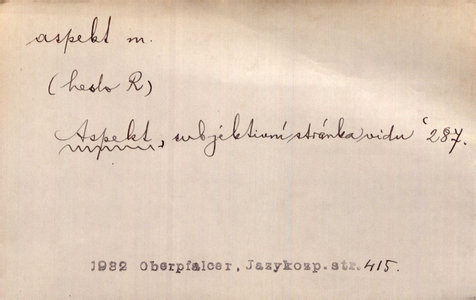 aspekt m.
(heslo R)
Aspekt, subjektivní stránka vidu‘ 287.
1932 Oberpfalcer, Jazykozp. str. 415.